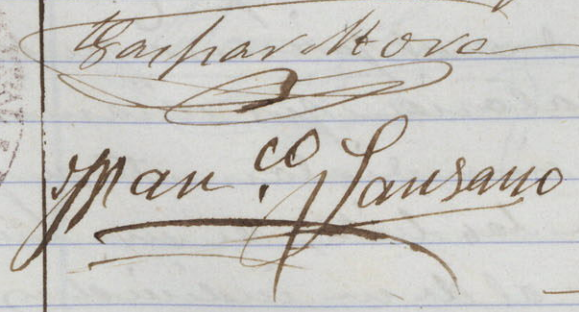 Gaspar Mora
Fran.co Lanzano